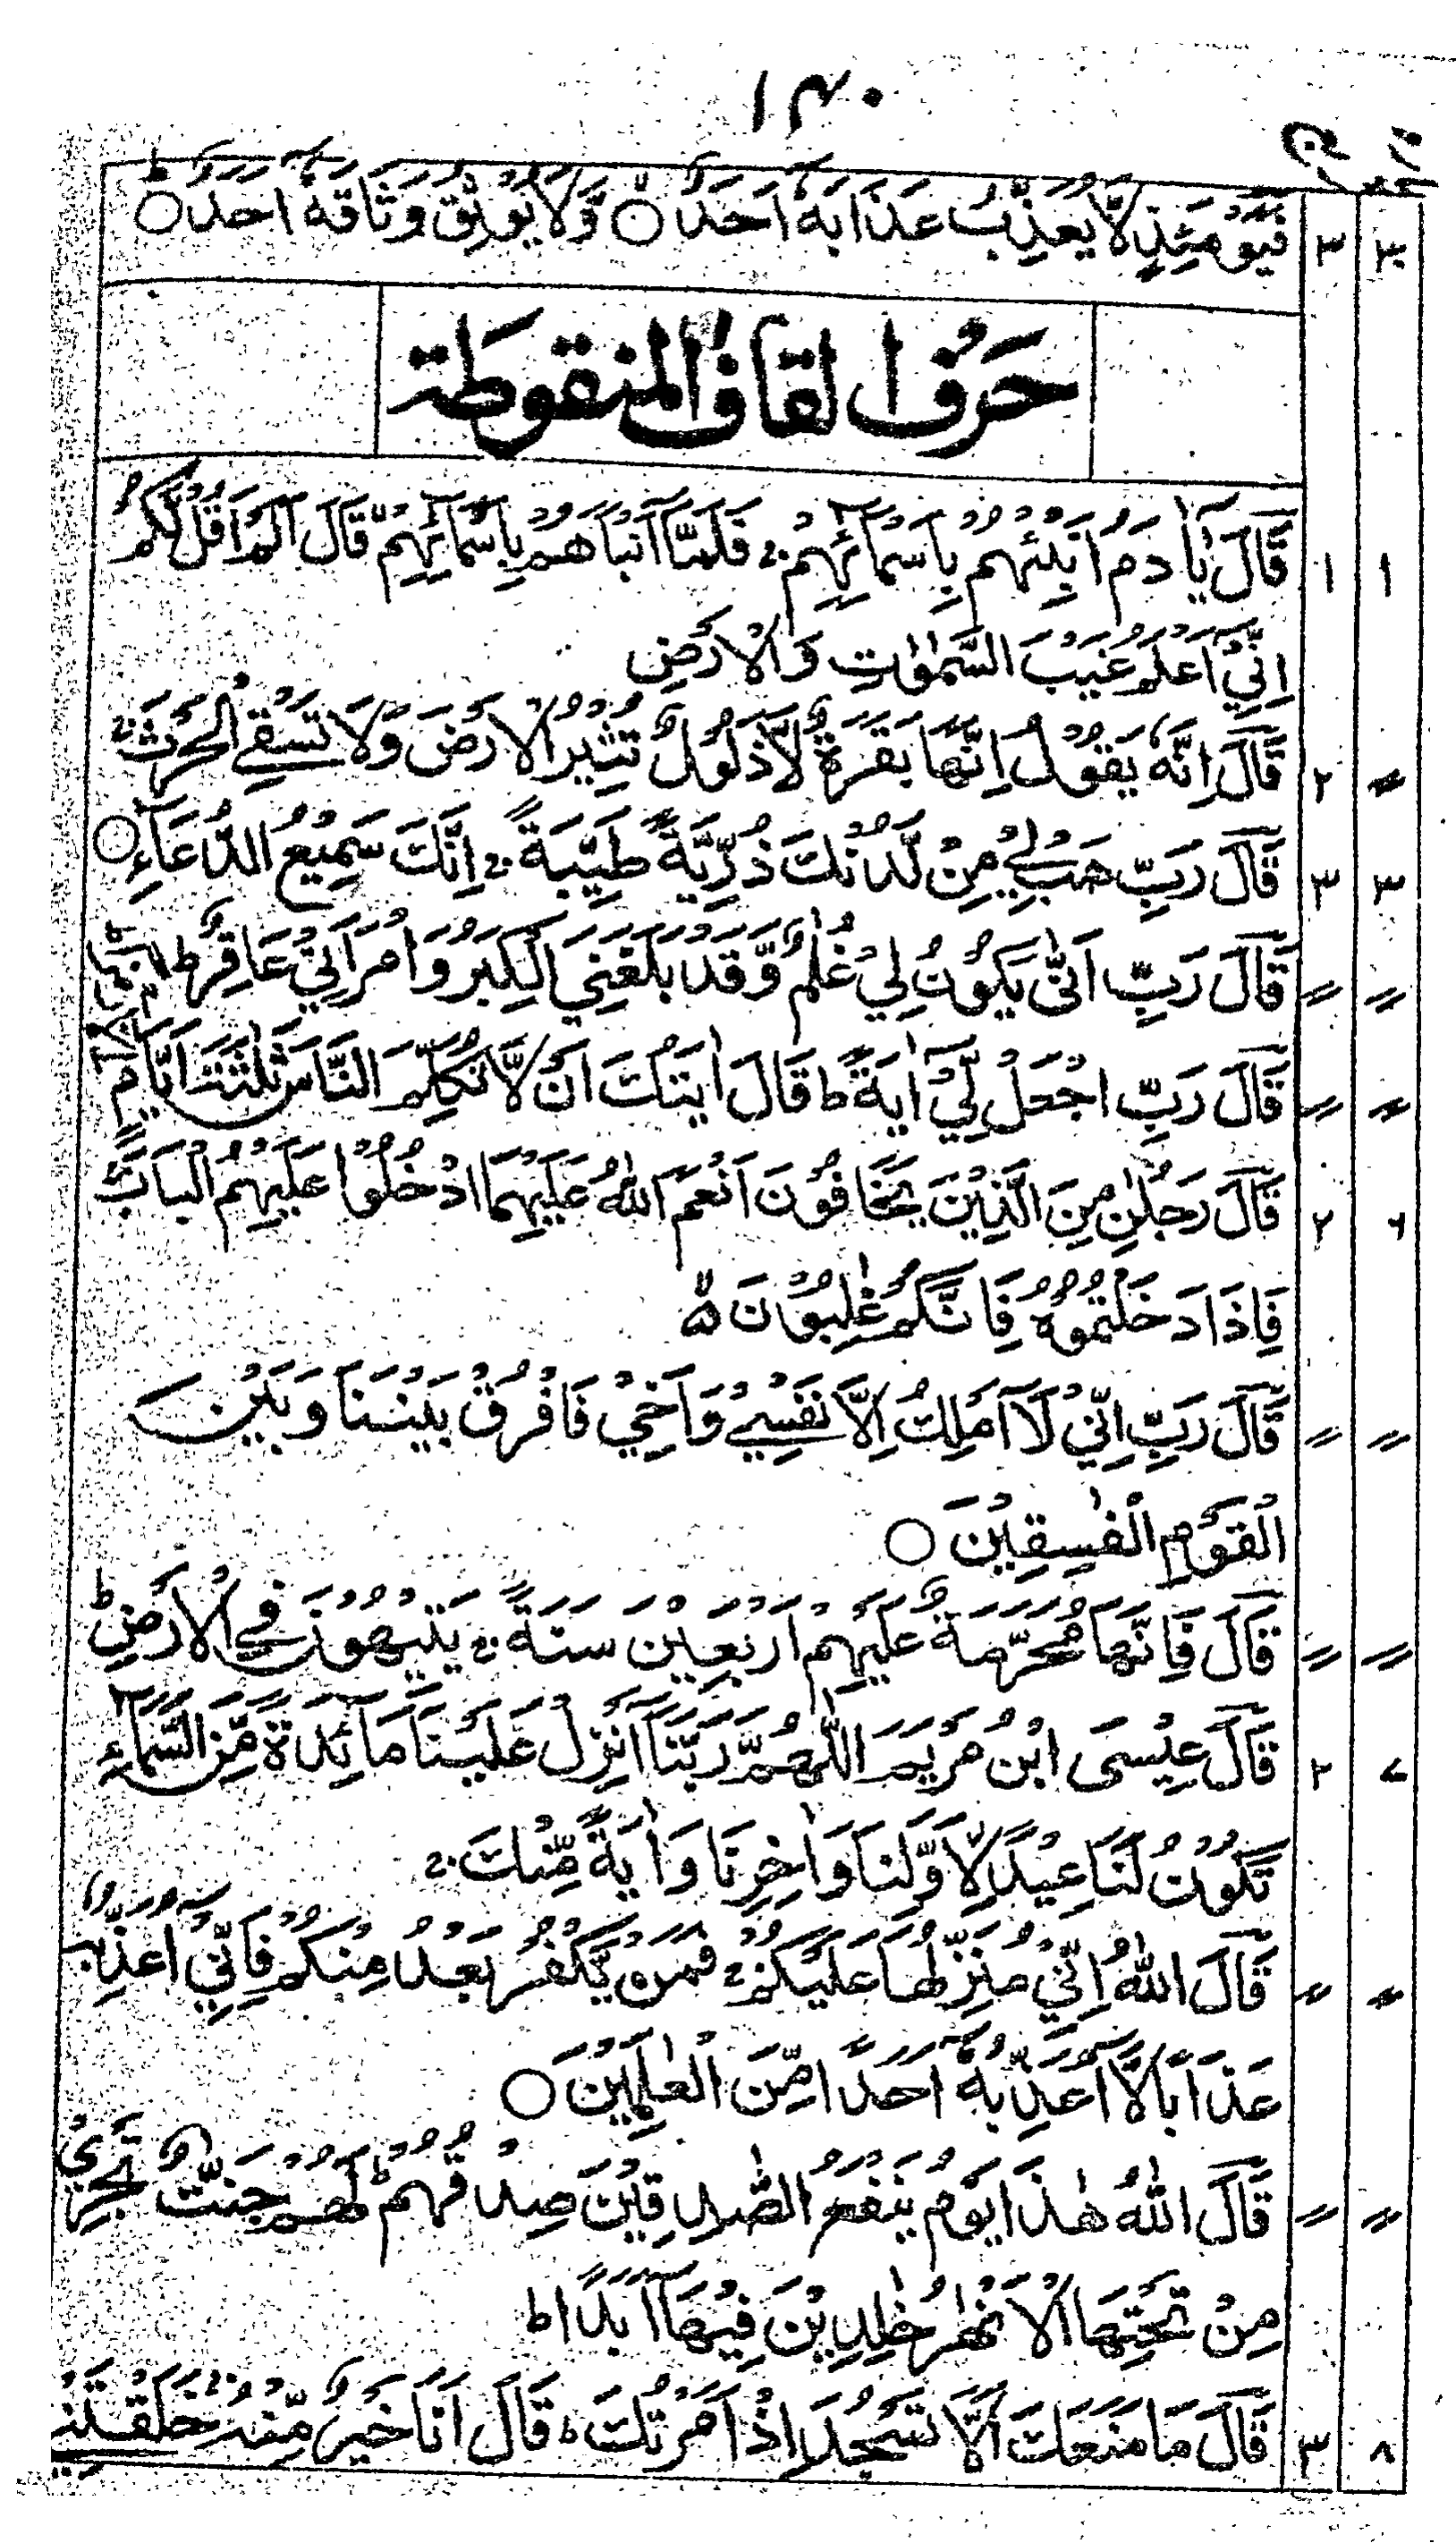 ۱۴۰
فَيَوْمَئِذٍ لَّا يُعَذِّبُ عَذَابَهٗٓ اَحَدٌ ۙ وَّلَا يُوْثِقُ وَثَاقَهٗٓ اَحَدٌ ؕ ۳ ۳۰
حَرْفُ الْقَافِ الْمَنْقُوْطَةِ
قَالَ يٰٓاٰدَمُ اَنْۢبِئْهُمْ بِاَسْمَآئِهِمْ ۚ فَلَمَّآ اَنْۢبَاَهُمْ بِاَسْمَآئِهِمْ قَالَ اَلَمْ اَقُلْ لَّكُمْ ۱ ۱
اِنِّيْٓ اَعْلَمُ غَيْبَ السَّمٰوٰتِ وَالْاَرْضِ
قَالَ اِنَّهٗ يَقُوْلُ اِنَّهَا بَقَرَةٌ لَّا ذَلُوْلٌ تُثِيْرُ الْاَرْضَ وَلَا تَسْقِي الْحَرْثَ ۚ ۲ 〃
قَالَ رَبِّ هَبْ لِيْ مِنْ لَّدُنْكَ ذُرِّيَّةً طَيِّبَةً ۚ اِنَّكَ سَمِيْعُ الدُّعَآءِ ۳ ۳
قَالَ رَبِّ اَنّٰى يَكُوْنُ لِيْ غُلٰمٌ وَّقَدْ بَلَغَنِيَ الْكِبَرُ وَامْرَاَتِيْ عَاقِرٌ ؕ 〃 〃
قَالَ رَبِّ اجْعَلْ لِّيْٓ اٰيَةً ؕ قَالَ اٰيَتُكَ اَنْ لَّا تُكَلِّمَ النَّاسَ ثَلٰثَةَ اَيَّامٍ 〃 〃
قَالَ رَجُلٰنِ مِنَ الَّذِيْنَ يَخَافُوْنَ اَنْعَمَ اللّٰهُ عَلَيْهِمَا ادْخُلُوْا عَلَيْهِمُ الْبَابَ ۚ ۲ ۶
فَاِذَا دَخَلْتُمُوْهُ فَاِنَّكُمْ غٰلِبُوْنَ ۵
قَالَ رَبِّ اِنِّيْ لَآ اَمْلِكُ اِلَّا نَفْسِيْ وَاَخِيْ فَافْرُقْ بَيْنَنَا وَبَيْنَ 〃 〃
الْقَوْمِ الْفٰسِقِيْنَ
قَالَ فَاِنَّهَا مُحَرَّمَةٌ عَلَيْهِمْ اَرْبَعِيْنَ سَنَةً ۚ يَتِيْهُوْنَ فِي الْاَرْضِ ؕ 〃 〃
قَالَ عِيْسَى ابْنُ مَرْيَمَ اللّٰهُمَّ رَبَّنَآ اَنْزِلْ عَلَيْنَا مَآئِدَةً مِّنَ السَّمَآءِ ۲ ۷
تَكُوْنُ لَنَا عِيْدًا لِّاَوَّلِنَا وَاٰخِرِنَا وَاٰيَةً مِّنْكَ ۚ
قَالَ اللّٰهُ اِنِّيْ مُنَزِّلُهَا عَلَيْكُمْ ۚ فَمَنْ يَّكْفُرْ بَعْدُ مِنْكُمْ فَاِنِّيْٓ اُعَذِّبُهٗ 〃 〃
عَذَابًا لَّآ اُعَذِّبُهٗٓ اَحَدًا مِّنَ الْعٰلَمِيْنَ
قَالَ اللّٰهُ هٰذَا يَوْمُ يَنْفَعُ الصّٰدِقِيْنَ صِدْقُهُمْ ؕ لَهُمْ جَنّٰتٌ تَجْرِيْ 〃 〃
مِنْ تَحْتِهَا الْاَنْهٰرُ خٰلِدِيْنَ فِيْهَآ اَبَدًا ؕ
قَالَ مَا مَنَعَكَ اَلَّا تَسْجُدَ اِذْ اَمَرْتُكَ ؕ قَالَ اَنَا خَيْرٌ مِّنْهُ ۚ خَلَقْتَنِيْ ۳ ۸